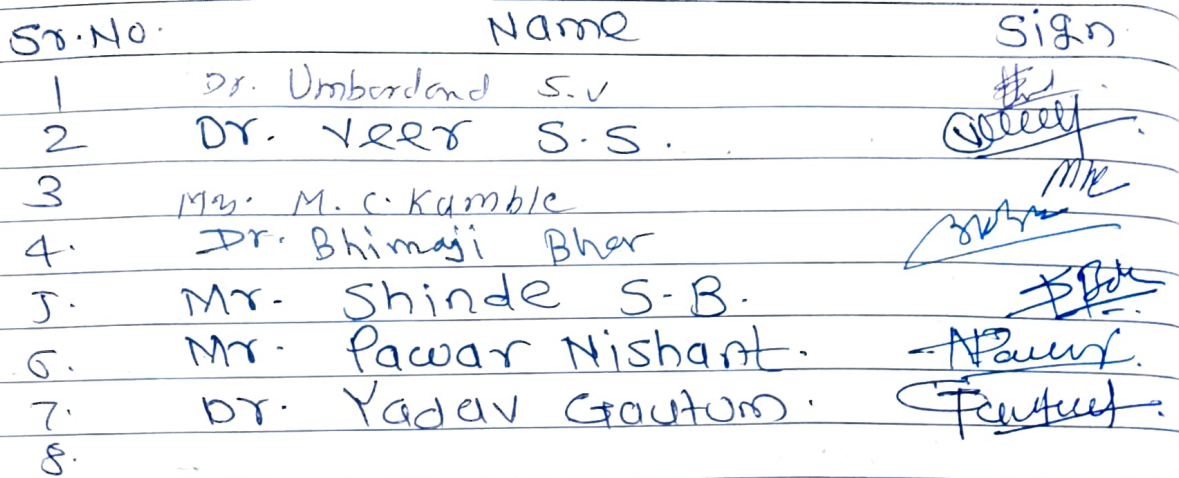 Sr. No. Name Sign
1 Dr. Umbardand S. V
2 Dr. Veer S. S.
3 Mr. M. C. Kamble
4. Dr. Bhimaji Bhor
5. Mr. Shinde S. B.
6. Mr. Pawar Nishant. NPawar.
7. Dr. Yadav Gautum.
8.